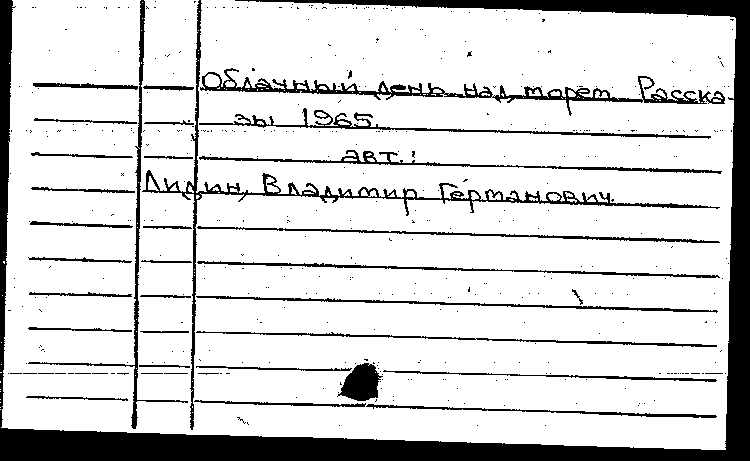 Облачный день над морем. Расска-
зы 1965.
авт.:
Лидин, Владимир Германович.